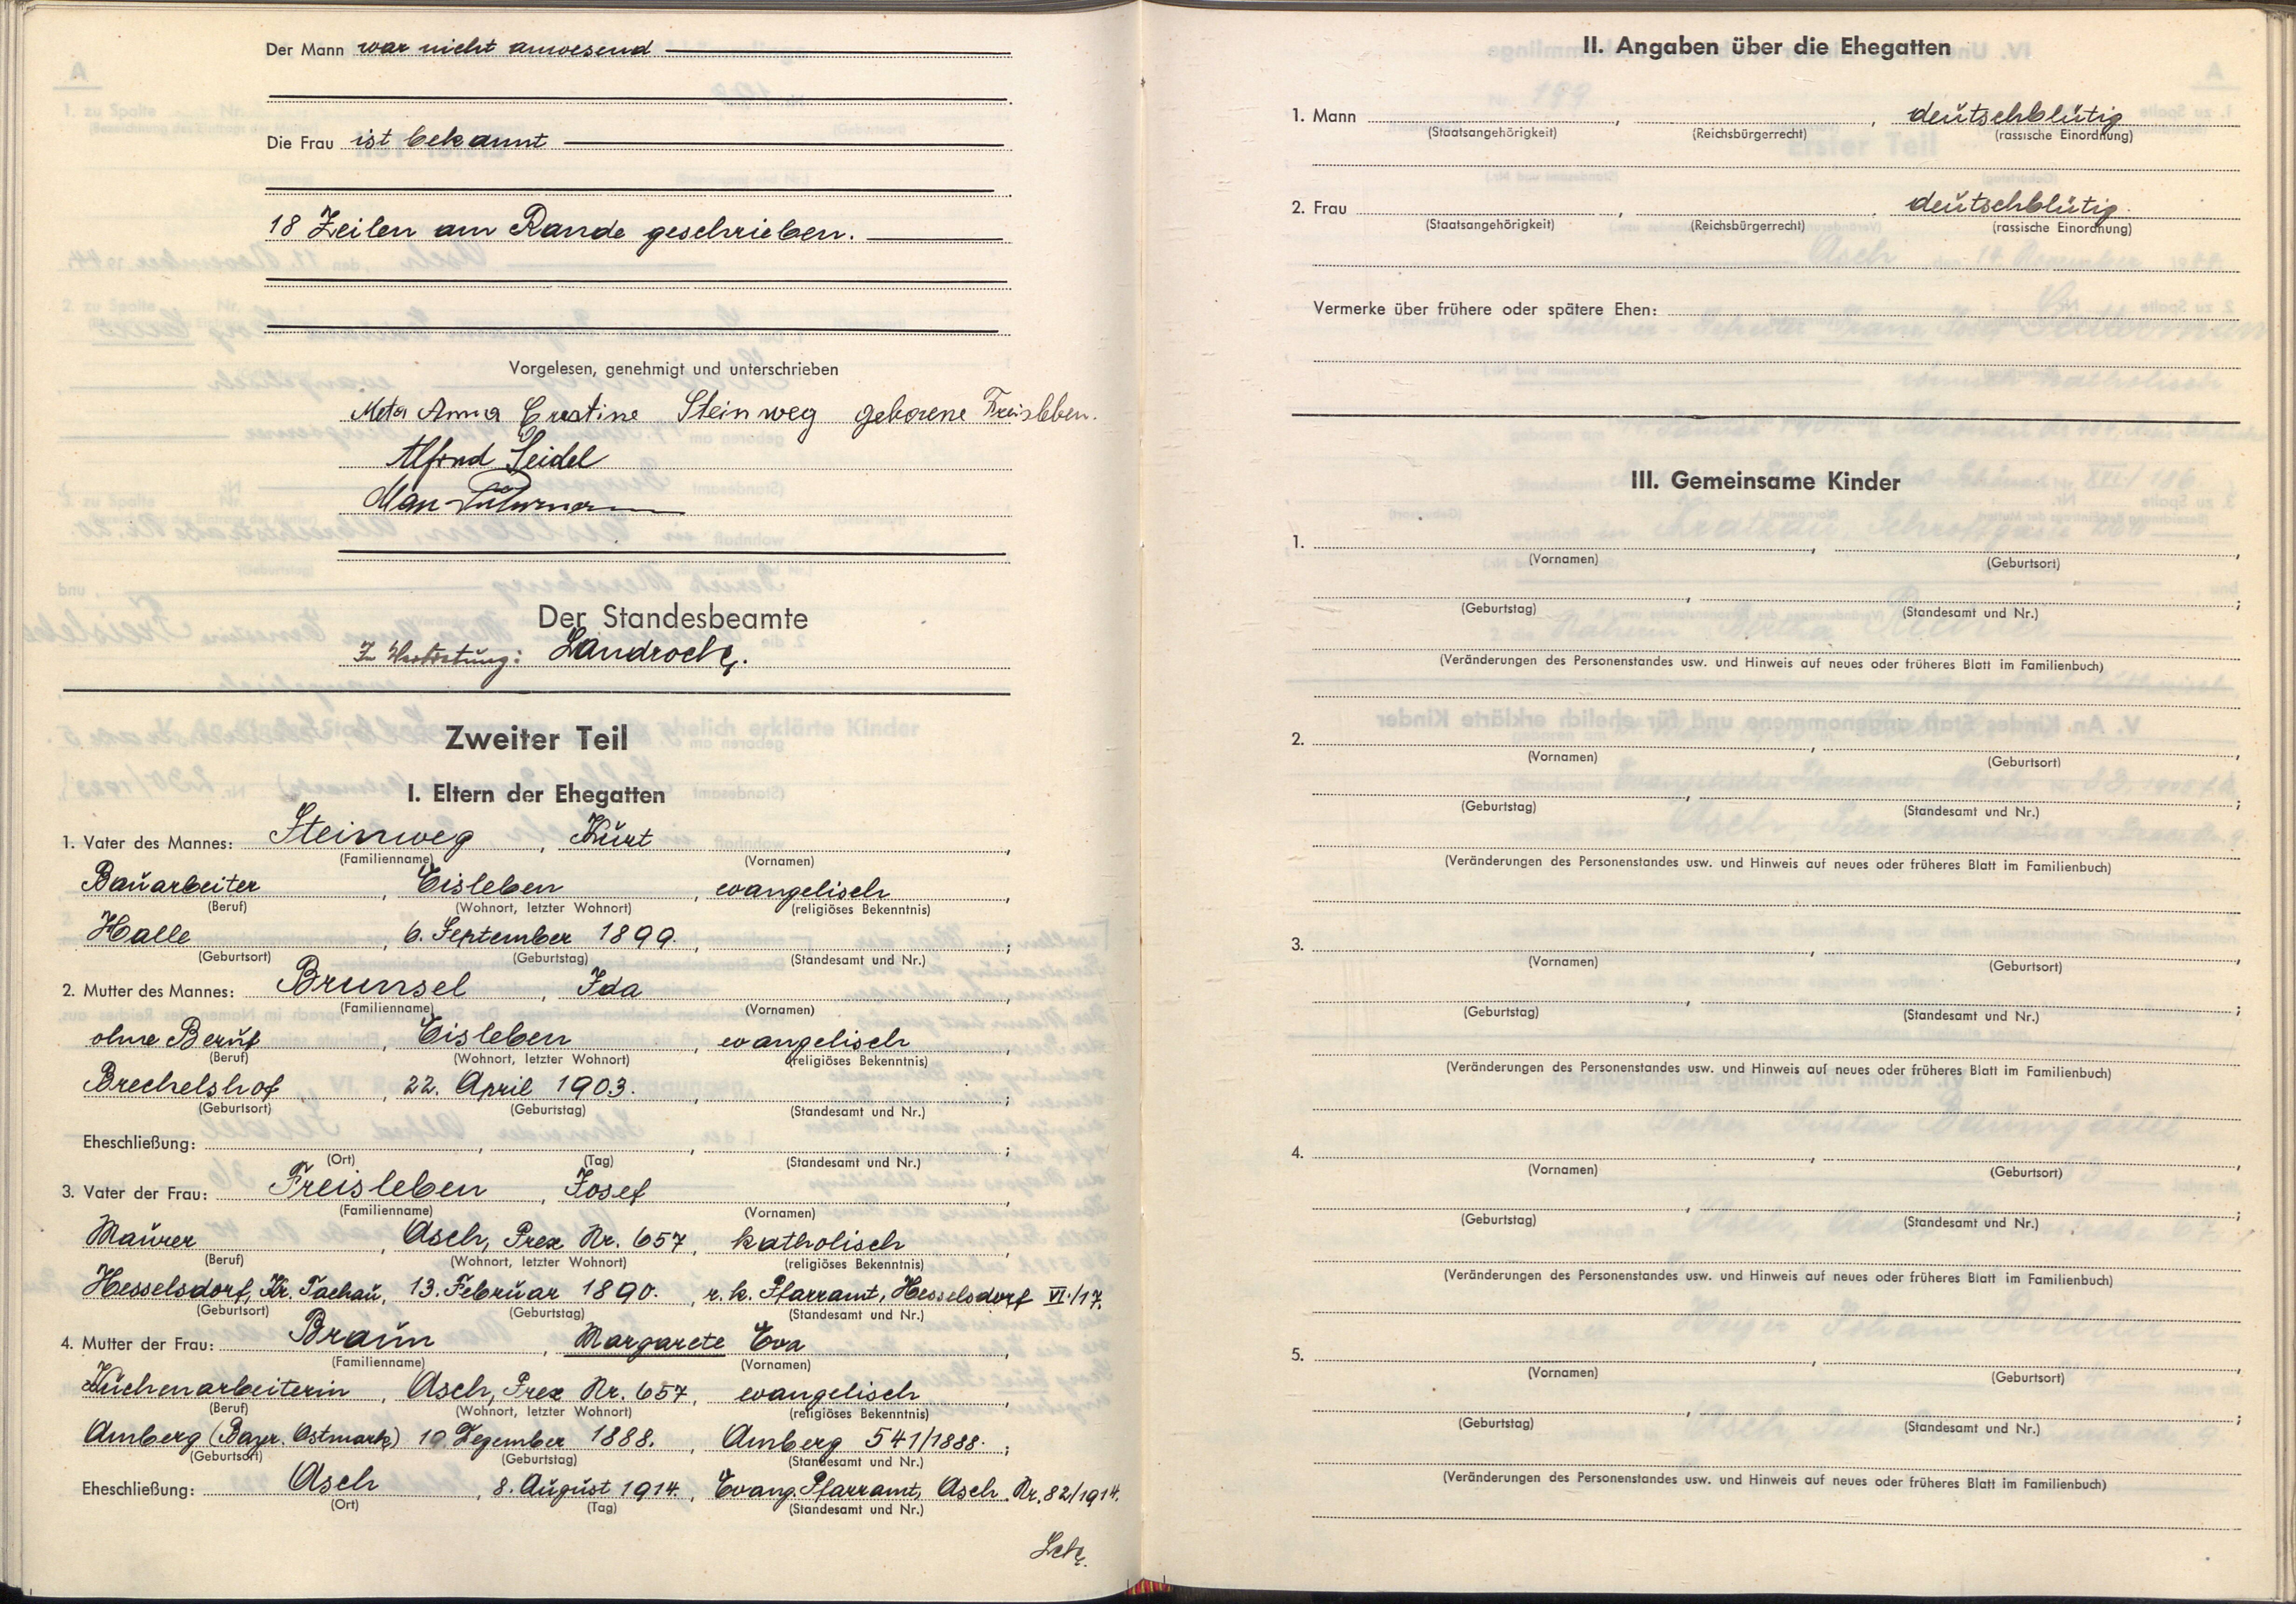 Der Mann war nicht anwesend
Die Frau ist bekannt
18 Zeilen am Rande geschrieben.
Vorgelesen, genehmigt und unterschrieben
Meta Anna Steinweg geborene Freisleben.
Alfred Seidel
Max
Der Standesbeamte
In Vertretung: Landrock
Zweiter Teil
I. Eltern der Ehegatten
1. Vater des Mannes: Steinweg, Kurt
(Familienname) (Vornamen)
Bauarbeiter, Eisleben, evangelisch,
(Beruf) (Wohnort, letzter Wohnort) (religiöses Bekenntnis)
Halle, 6. September 1899. , ;
(Geburtsort) (Geburtstag) (Standesamt und Nr.)
2. Mutter des Mannes: Brunsel, Ida ,
(Familienname) (Vornamen)
ohne Beruf, Eisleben, evangelisch,
(Beruf) (Wohnort, letzter Wohnort) (religiöses Bekenntnis)
Brechelshof, 22. April 1903. , ;
(Geburtsort) (Geburtstag) (Standesamt und Nr.)
Eheschließung: , , ;
(Ort) (Tag) (Standesamt und Nr.)
3. Vater der Frau: Freisleben, Josef ,
(Familienname) (Vornamen)
Maurer, Asch, Prex Nr. 657, katholisch,
(Beruf) (Wohnort, letzter Wohnort) (religiöses Bekenntnis)
Hesselsdorf, Kr. Tachau, 13. Februar 1890. , r. k. Pfarramt, Hesselsdorf VI./17.
(Geburtsort) (Geburtstag) (Standesamt und Nr.)
4. Mutter der Frau: Braun, Margarete Eva ,
(Familienname) (Vornamen)
Küchenarbeiterin, Asch, Prex Nr. 657, evangelisch,
(Beruf) (Wohnort, letzter Wohnort) (religiöses Bekenntnis)
Amberg (Bayr. Ostmark) 19. Dezember 1888. , Amberg 541/1888. ;
(Geburtsort) (Geburtstag) (Standesamt und Nr.)
Eheschließung: Asch, 8. August 1914. , Evang. Pfarramt, Asch Nr. 82/1914.
(Ort) (Tag) (Standesamt und Nr.)
II. Angaben über die Ehegatten
1. Mann , , deutschblütig
(Staatsangehörigkeit) (Reichsbürgerrecht) (rassische Einordnung)
2. Frau , , deutschblütig.
(Staatsangehörigkeit) (Reichsbürgerrecht) (rassische Einordnung)
Vermerke über frühere oder spätere Ehen:
III. Gemeinsame Kinder
1. , ,
(Vornamen) (Geburtsort)
, ;
(Geburtstag) (Standesamt und Nr.)
(Veränderungen des Personenstandes usw. und Hinweis auf neues oder früheres Blatt im Familienbuch)
2. , ,
(Vornamen) (Geburtsort)
, ;
(Geburtstag) (Standesamt und Nr.)
(Veränderungen des Personenstandes usw. und Hinweis auf neues oder früheres Blatt im Familienbuch)
3. , ,
(Vornamen) (Geburtsort)
, ;
(Geburtstag) (Standesamt und Nr.)
(Veränderungen des Personenstandes usw. und Hinweis auf neues oder früheres Blatt im Familienbuch)
4. , ,
(Vornamen) (Geburtsort)
, ;
(Geburtstag) (Standesamt und Nr.)
(Veränderungen des Personenstandes usw. und Hinweis auf neues oder früheres Blatt im Familienbuch)
5. , ,
(Vornamen) (Geburtsort)
, ;
(Geburtstag) (Standesamt und Nr.)
(Veränderungen des Personenstandes usw. und Hinweis auf neues oder früheres Blatt im Familienbuch)